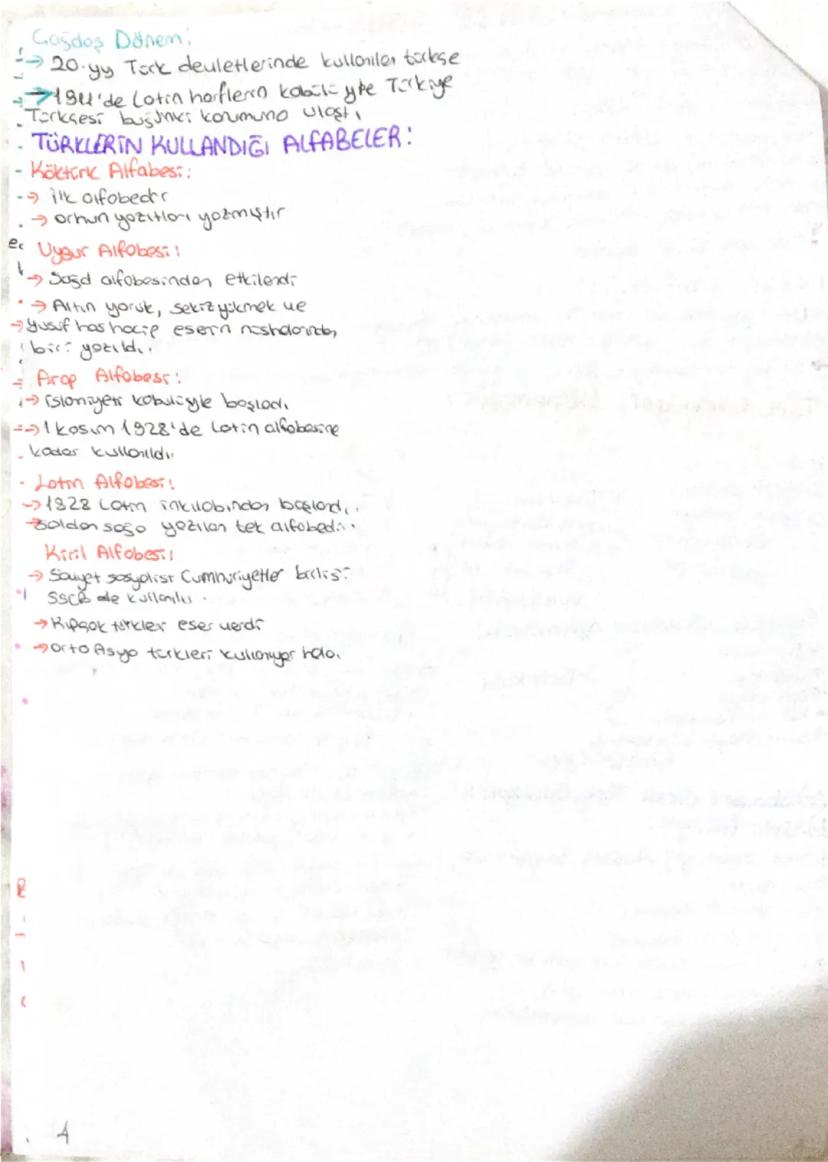 Çağdaş Dönem:
→ 20.yy Türk devletlerinde kullanılan türkçe
→ 1911'de Latin harflerin kabulü yle Türkiye
Türkçesi bugünkü konumuna ulaştı
TÜRKLERİN KULLANDIĞI ALFABELER:
- Köktürk Alfabesi:
→ ilk alfabedir
→ orhun yazıtları yazmıştır
Uygur Alfabesi:
→ Soğd alfabesinden etkilendi
→ Altın yaruk, sekiz yükmek ve
→ yusuf has hacip eserin nüshalarında,
biri yazıldı.
Arap Alfabesi:
→ islamiyeti kabulüyle başladı
→ 1 kasım 1928'de Latin alfabesine
kadar kullanıldı.
- Latin Alfabesi:
→ 1928 Latin inkılabından başlandı.
→ Soldan sağa yazılan tek alfabedir.
Kiril Alfabesi:
→ Sovyet sosyalist Cumhuriyetler birliği
SSCB de kullanılır.
→ Kıpçak türkleri eser verdi
→ Orta Asya türkleri kullanıyor hala.
4